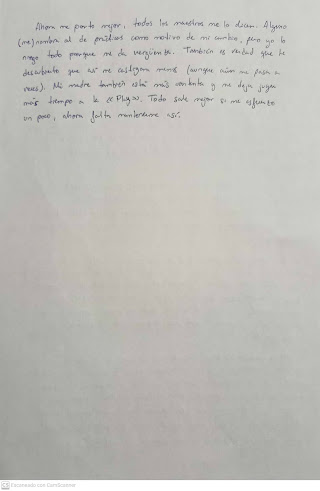 Ahora me porto mejor, todos los maestros me lo dicen. Alguno
(me) nombra al de prácticas como motivo de mi cambio, pero yo lo
niego todo porque me da vergüenza. También es verdad que he
descubierto que así me castigan menos (aunque aún me pasa a
veces). Mi madre también está más contenta y me deja jugar
más tiempo a la «Play». Todo sale mejor si me esfuerzo
un poco, ahora falta mantenerme así.
Escaneado con CamScanner